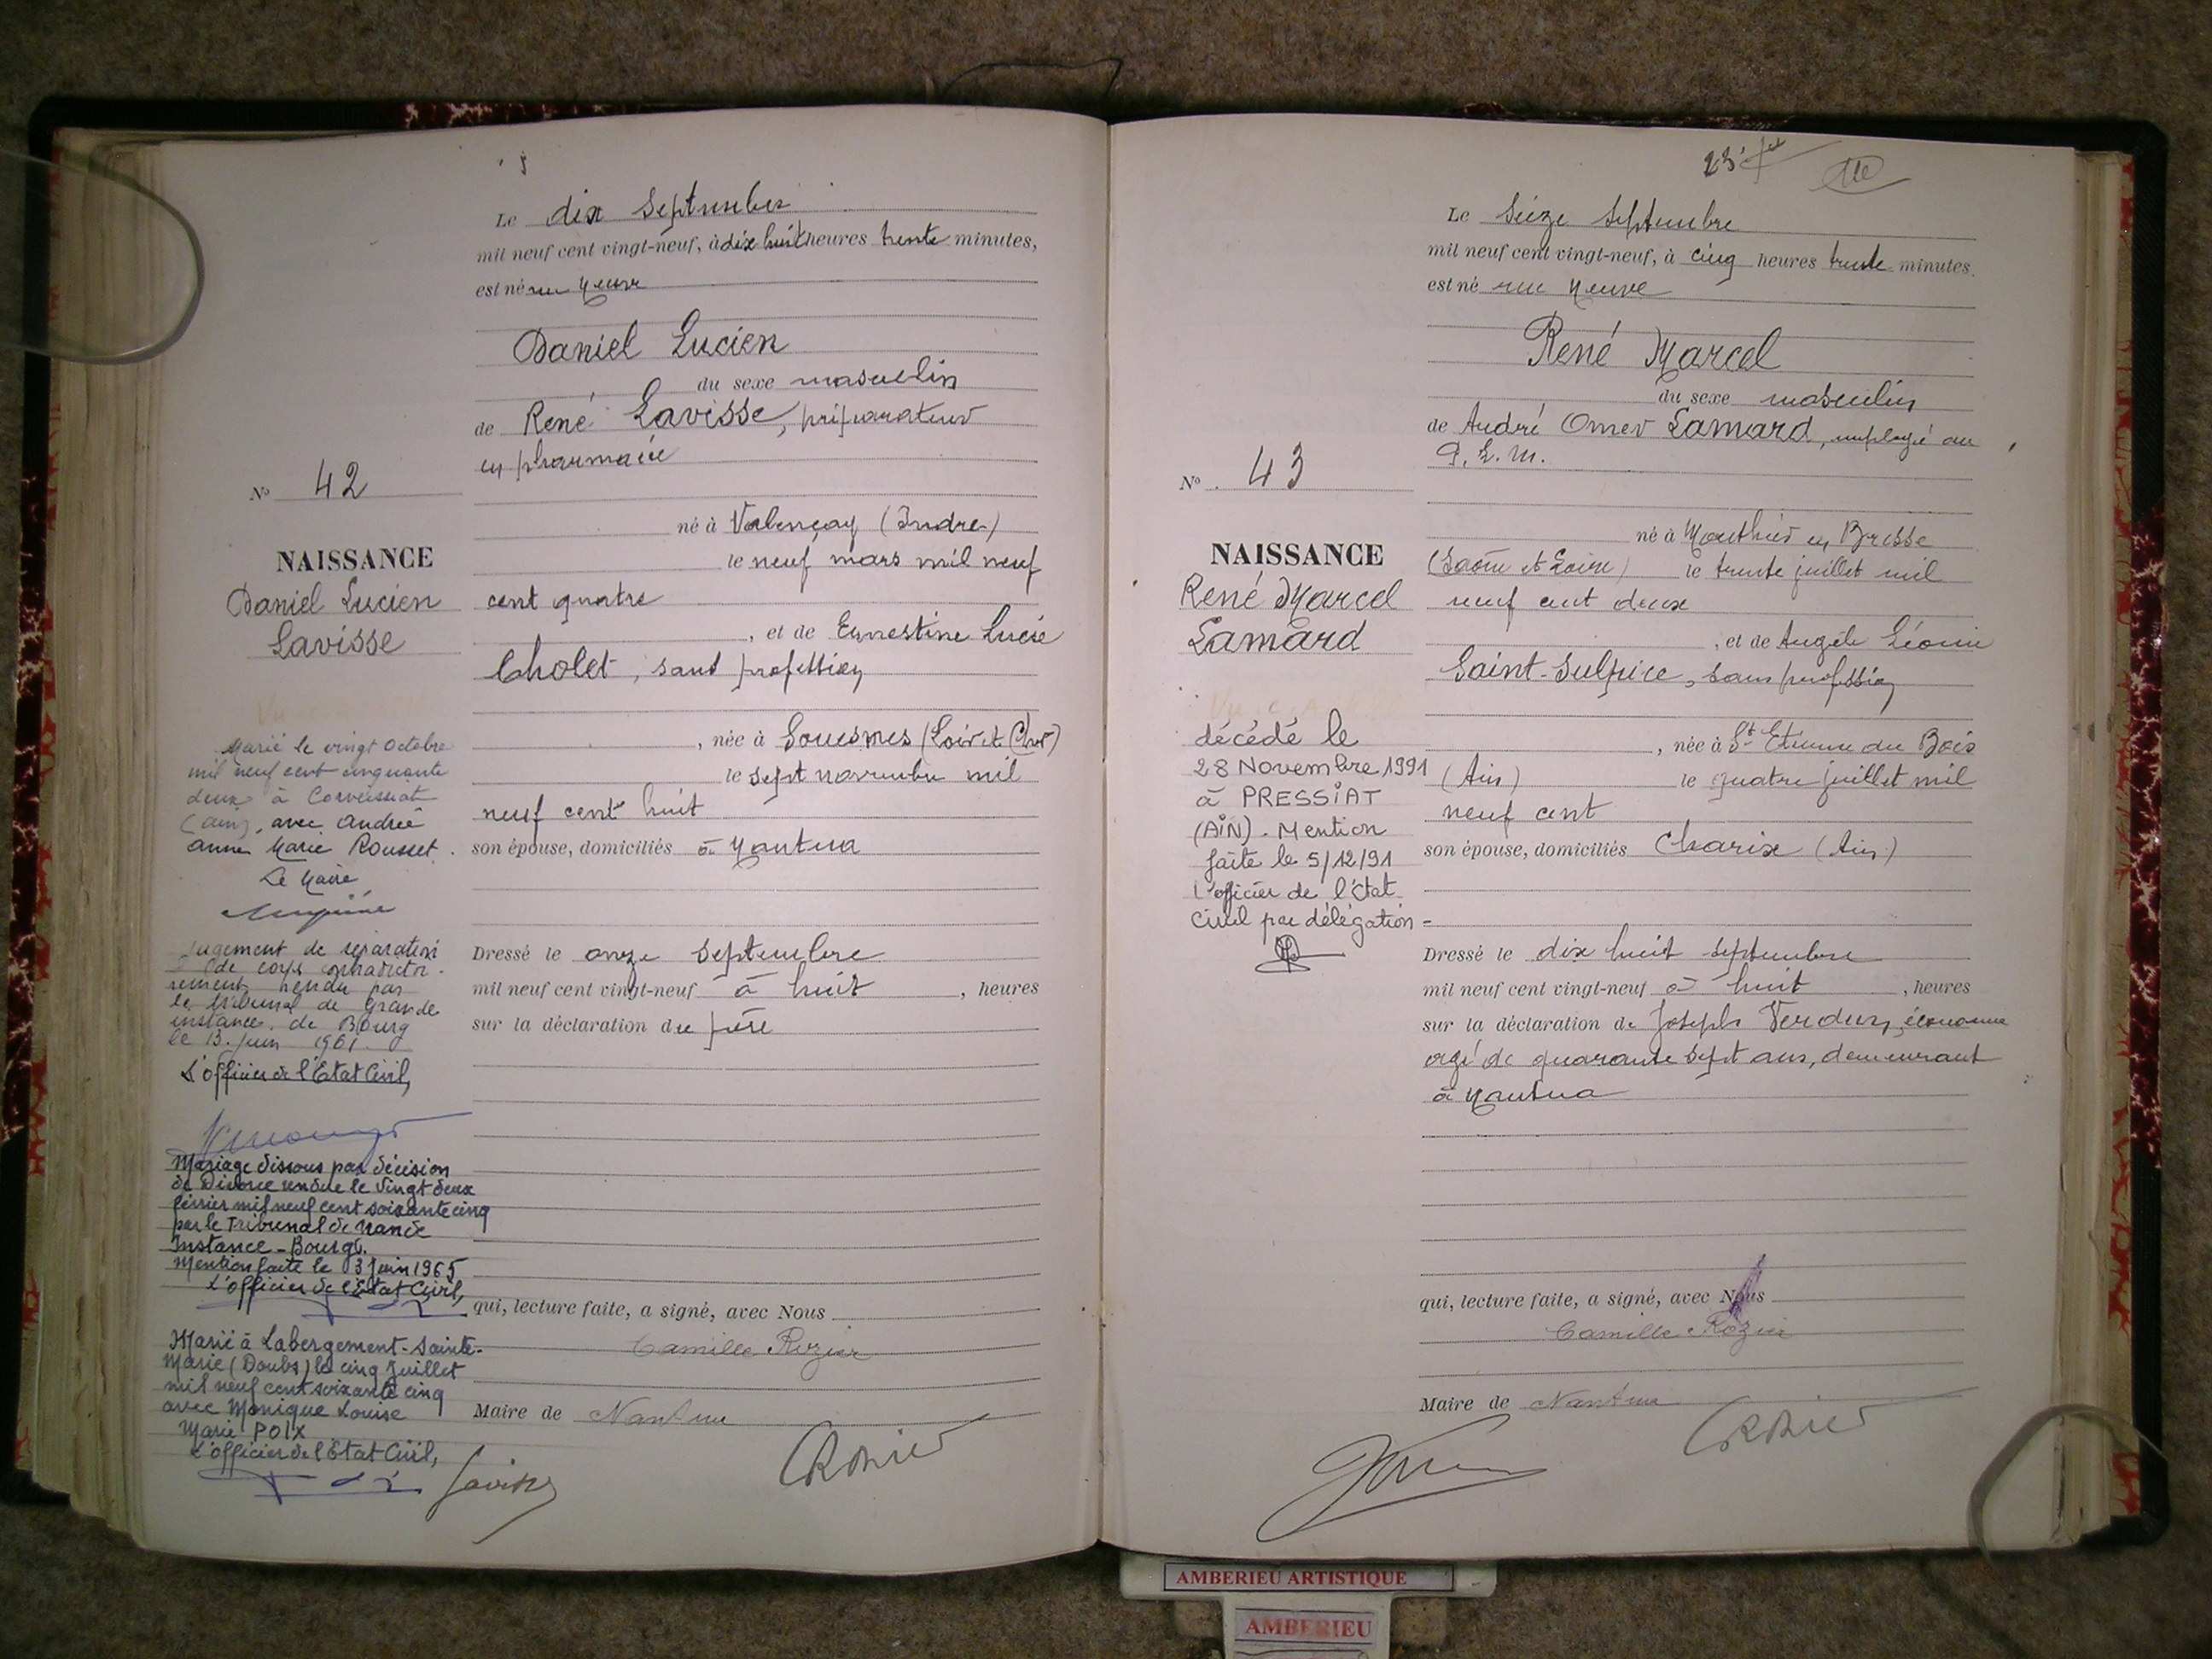 Le dix Septembre
mil neuf cent vingt-neuf, à dix huit heures trente minutes,
est né rue Neuve
Daniel Lucien
du sexe masculin
de René Lavisse, préparateur
en pharmacie
né à Valençay (Indre)
le neuf mars mil neuf
cent quatre
, et de Ernestine Lucie
Cholet, sans profession
, née à Souesmes (Loir et Cher)
le sept novembre mil
neuf cent huit
son épouse, domiciliés à Nantua
Dressé le onze Septembre
mil neuf cent vingt-neuf à huit , heures
sur la déclaration du père
qui, lecture faite, a signé, avec Nous
Camille Rozier
Maire de Nantua
Lavisse
CRozier
No 42
NAISSANCE
Daniel Lucien
Lavisse
Marié le vingt Octobre
mil neuf cent cinquante
deux à Corveissiat
(Ain), avec Andrée
Anne Marie Rousset.
Le Maire
Jugement de séparation
de corps contradictoi-
rement rendu par
le tribunal de Grande
instance de Bourg
le 13 Juin 1961.
L'officier de l'Etat Civil,
Mariage dissous par décision
de Divorce rendue le Vingt deux
février mil neuf cent soixante cinq
par le Tribunal de Grande
Instance - Bourg.
Mention faite le 3 Juin 1965
L'officier de l'Etat Civil,
Marié à Labergement-Sainte-
Marie (Doubs) le cinq Juillet
mil neuf cent soixante cinq
avec Monique Louise
Marie POIX
L'officier de l'Etat Civil,
Le Seize Septembre
mil neuf cent vingt-neuf, à cinq heures trente minutes.
est né rue Neuve
René Marcel
du sexe masculin
de André Omer Lamard, employé au
P.L.M.
né à Mouthier en Bresse
(Saône et Loire) le trente juillet mil
neuf cent deux
, et de Angèle Léonie
Saint-Sulpice, sans profession
, née à St Etienne du Bois
(Ain) le quatre juillet mil
neuf cent
son épouse, domiciliés Charix (Ain)
Dressé le dix huit septembre
mil neuf cent vingt-neuf à huit , heures
sur la déclaration de Joseph Verdun, économe
agé de quarante sept ans, demeurant
à Nantua
qui, lecture faite, a signé, avec Nous
Camille Rozier
Maire de Nantua
CRozier
No 43
NAISSANCE
René Marcel
Lamard
décédé le
28 Novembre 1991
à PRESSIAT
(AIN). Mention
faite le 5/12/91
L'officier de l'Etat
Civil par délégation -
AMBERIEU ARTISTIQUE
AMBERIEU